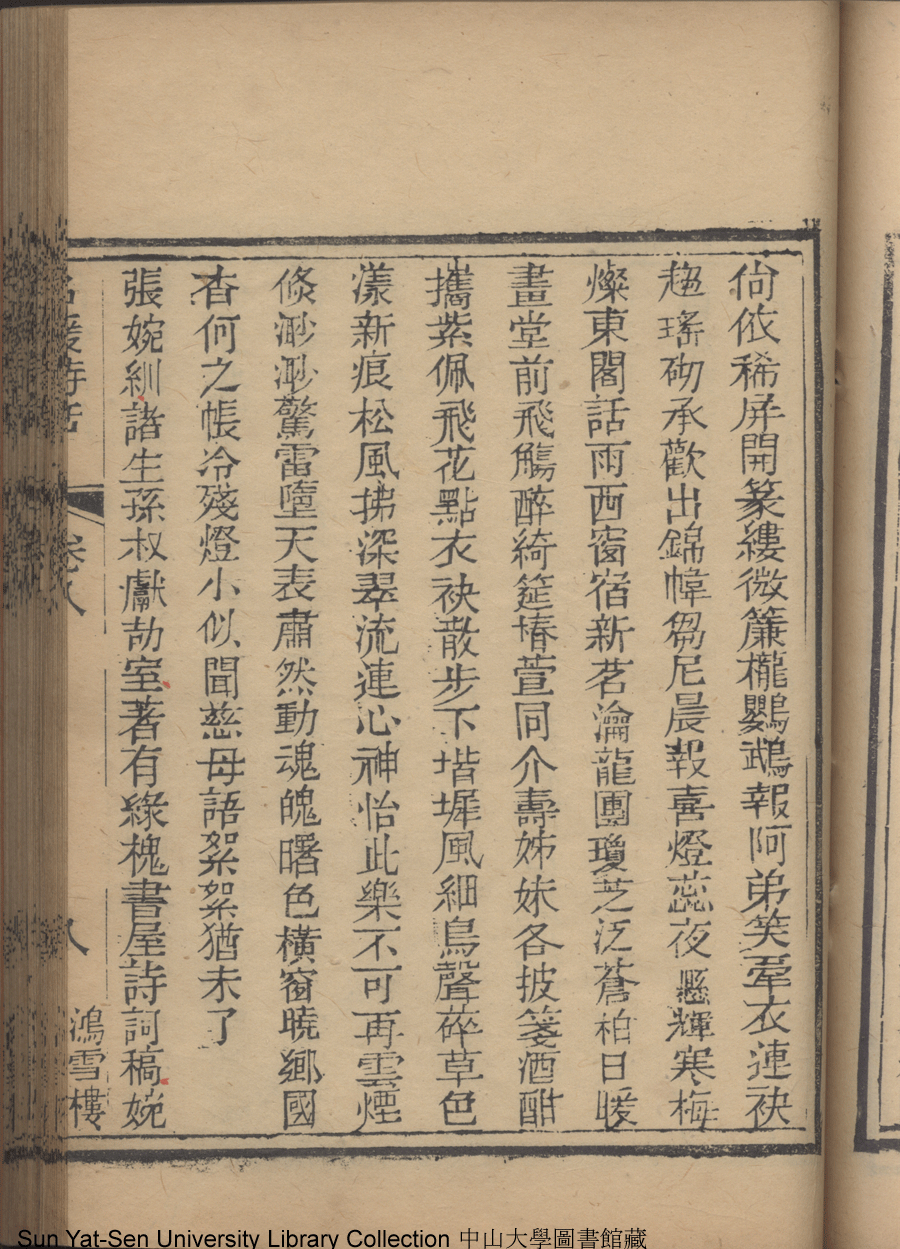 尙依稀屏開篆縷微簾櫳鸚鵡報阿弟笑牽衣連袂
趨瑤砌承歡出錦幃芻尼晨報喜燈蕊夜懸輝寒梅
燦東閣話雨西窗宿新茗瀹龍團瓊芝泛蒼柏日暖
畫堂前飛觴醉綺筵椿萱同介壽姊妹各披箋酒酣
攜紫佩飛花點衣袂散步下堦墀風細鳥聲碎草色
漾新痕松風拂深翠流連心神怡此樂不可再雲煙
倐渺渺驚雷墮天表肅然動魂魄曙色橫窗曉鄉國
杳何之帳冷殘燈小似聞慈母語絮絮猶未了
張婉紃諸生孫叔獻劼室著有綠槐書屋詩詞稿婉
名媛詩話 卷八 八 鴻雪樓
Sun Yat-Sen University Library Collection 中山大學圖書館藏